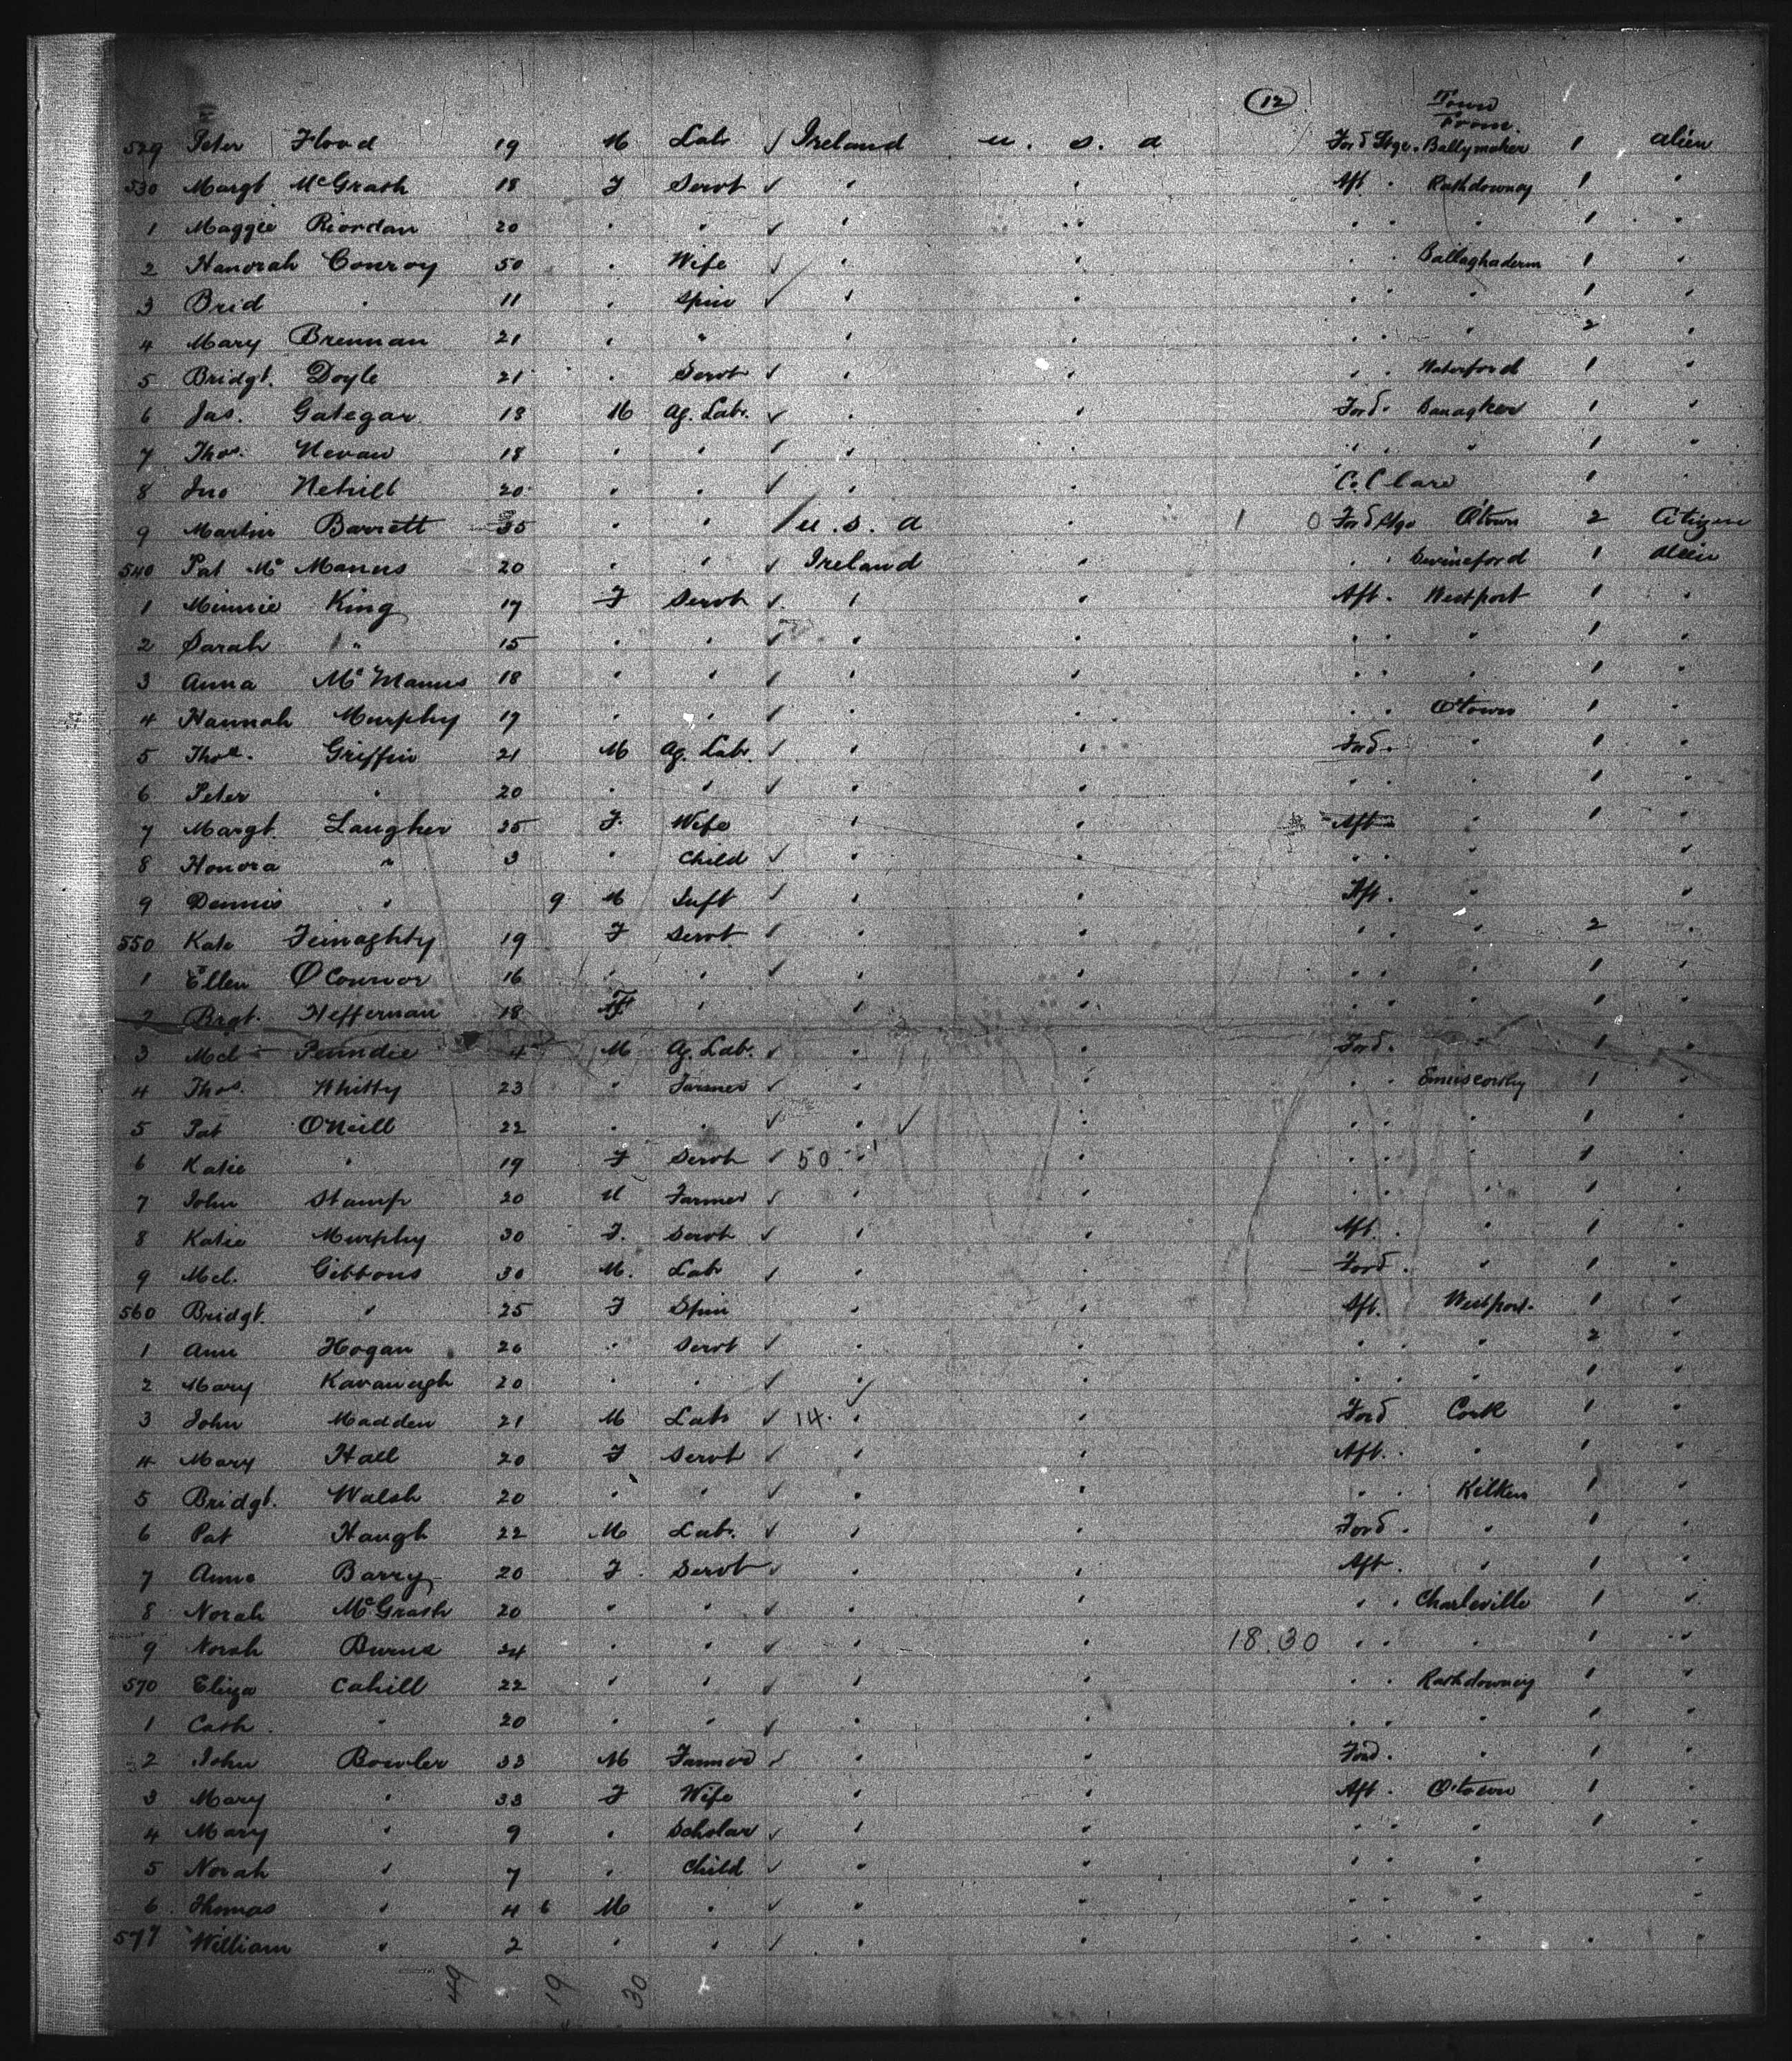 12 Town From
529 Peter Flood 19 M Lab ✓ Ireland u. s. a Ford Stge. Ballymaher 1 alien
530 Margt McGrath 18 F Servt ✓ " " Aft. Rathdowney 1 "
1 Maggie Riordan 20 " " ✓ " " " " " 1 "
2 Hanorah Conroy 50 " Wife ✓ " " " " Ballaghaderin 1 "
3 Brid " 11 " Spin ✓ " " " " " 1 "
4 Mary Brennan 21 " " " " " " " 2 "
5 Bridgt. Doyle 21 " Servt ✓ " " " " Waterford 1 "
6 Jas. Gategar 18 M Ag. Lab. ✓ " " Ford. Banagher 1 "
7 Thos. Nevan 18 " " ✓ " " " " " 1 "
8 Jno Nehill 20 " " ✓ " " Co. Clare 1 "
9 Martin Barrett 35 " " / u. s. a " 1 0 Ford Stge Q'town 2 Citizen
540 Pat Mc Manus 20 " " ✓ Ireland " " " Swineford 1 alien
1 Minnie King 17 F Servt ✓ " " Aft. Westport 1 "
2 Sarah " 15 " " ✓ " " " " " 1 "
3 Anna McManus 18 " " ✓ " " " " " 1 "
4 Hannah Murphy 19 " " ✓ " " " " Q'town 1 "
5 Thos. Griffin 21 M Ag. Lab. ✓ " " Ford. " 1 "
6 Peter " 20 " " ✓ " " " " " 1 "
7 Margt. Laugher 25 F. Wife " " Aft " 1 "
8 Honora " 3 " Child ✓ " " " " " "
9 Dennis " 9 M Inft ✓ " " Aft. " "
550 Kate Feinaghty 19 F Servt ✓ " " " " " 2 "
1 Ellen O'Connor 16 " " ✓ " " " " " 1 "
2 Brgt. Heffernan 18 F " " " " " " 1 "
3 Mcl Pundie 4 M Ag. Lab. ✓ " " Ford. " 1 "
4 Thos. Whitty 23 " Farmer ✓ " " " " Enniscorthy 1 "
5 Pat O'Neill 22 " " ✓ " ✓ " " " " 1 "
6 Katie " 19 F Servt ✓ 50 " " " " " 1 "
7 John Stamp 20 M Farmer ✓ " " " " " 1 "
8 Katie Murphy 30 F. Servt ✓ " " Aft. " 1 "
9 Mcl. Gibbons 30 M. Lab ✓ " " Ford. " 1 "
560 Bridgt. " 25 F Spin " " Aft. Westport. 1 "
1 Ann Hogan 26 " Servt ✓ " " " " " 2 "
2 Mary Kavanagh 20 " " ✓ " ✓ " " " " 1 "
3 John Madden 21 M Lab ✓ 14. " " Ford Cork 1 "
4 Mary Hall 20 F Servt ✓ " " Aft. " 1 "
5 Bridgt. Walsh 20 " " ✓ " " " " Kilken 1 "
6 Pat Haugh 22 M Lab. ✓ " " Ford. " 1 "
7 Anne Barry 20 F. Servt ✓ " " Aft. " 1 "
8 Norah McGrath 20 " " ✓ " " " " Charleville 1 "
9 Norah Burns 24 " " ✓ " " 18.30 " " " 1 "
570 Eliza Cahill 22 " " ✓ " " " " Rathdowney 1 "
1 Cath. " 20 " " ✓ " " " " " 1 "
2 John Bowler 33 M Farmer ✓ " " Ford. " 1 "
3 Mary " 33 F Wife " " Aft. Q'town 1 "
4 Mary " 9 " Scholar ✓ " " " " " 1 "
5 Norah " 7 " Child ✓ " " " " " "
6 Thomas " 4 6 M " ✓ " " " " " "
577 William " 2 " " ✓ " " " " " " "
49 19 30